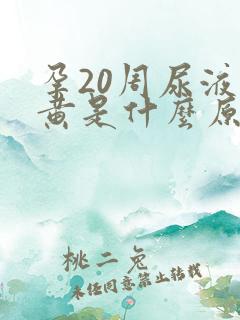 孕20周尿液
黄是什麼原
桃二兔
未经同意禁止转载